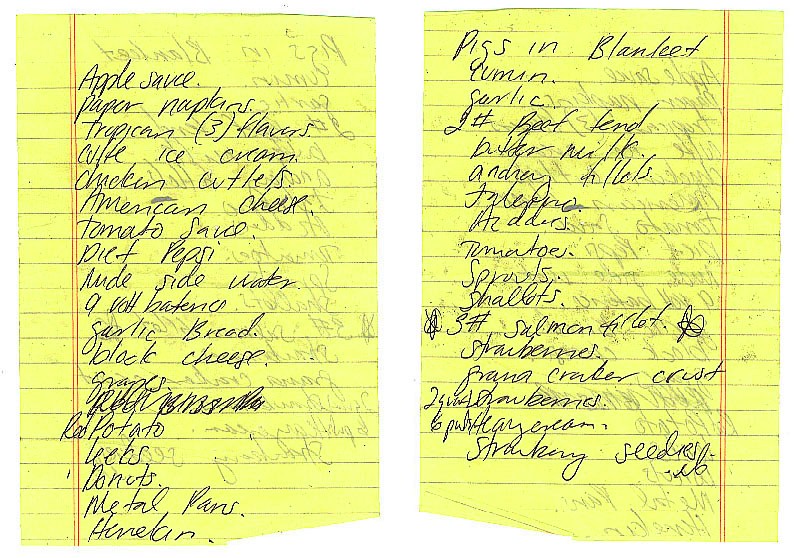 Apple sauce.
paper napkins.
Tropican (3) flavors.
cute ice cream.
chicken cutlets.
American cheese.
Tomato Sauce.
Diet Pepsi
side water
9 volt bateries
garlic Bread.
block cheese.
grapes
Red Potato
Leeks
Donuts.
Metal Pans.
Heneken.
Pigs in Blanket
Cumin.
garlic.
2# Beef tend
butter milk.
anchovy fillets.
Jalepeno.
Tomatoes.
Sprouts.
Shallots.
3# salmon fillet.
strawberries.
grana craker crust
2 quarts strawberries.
6 pint Heavycream.
Strawberry seedless